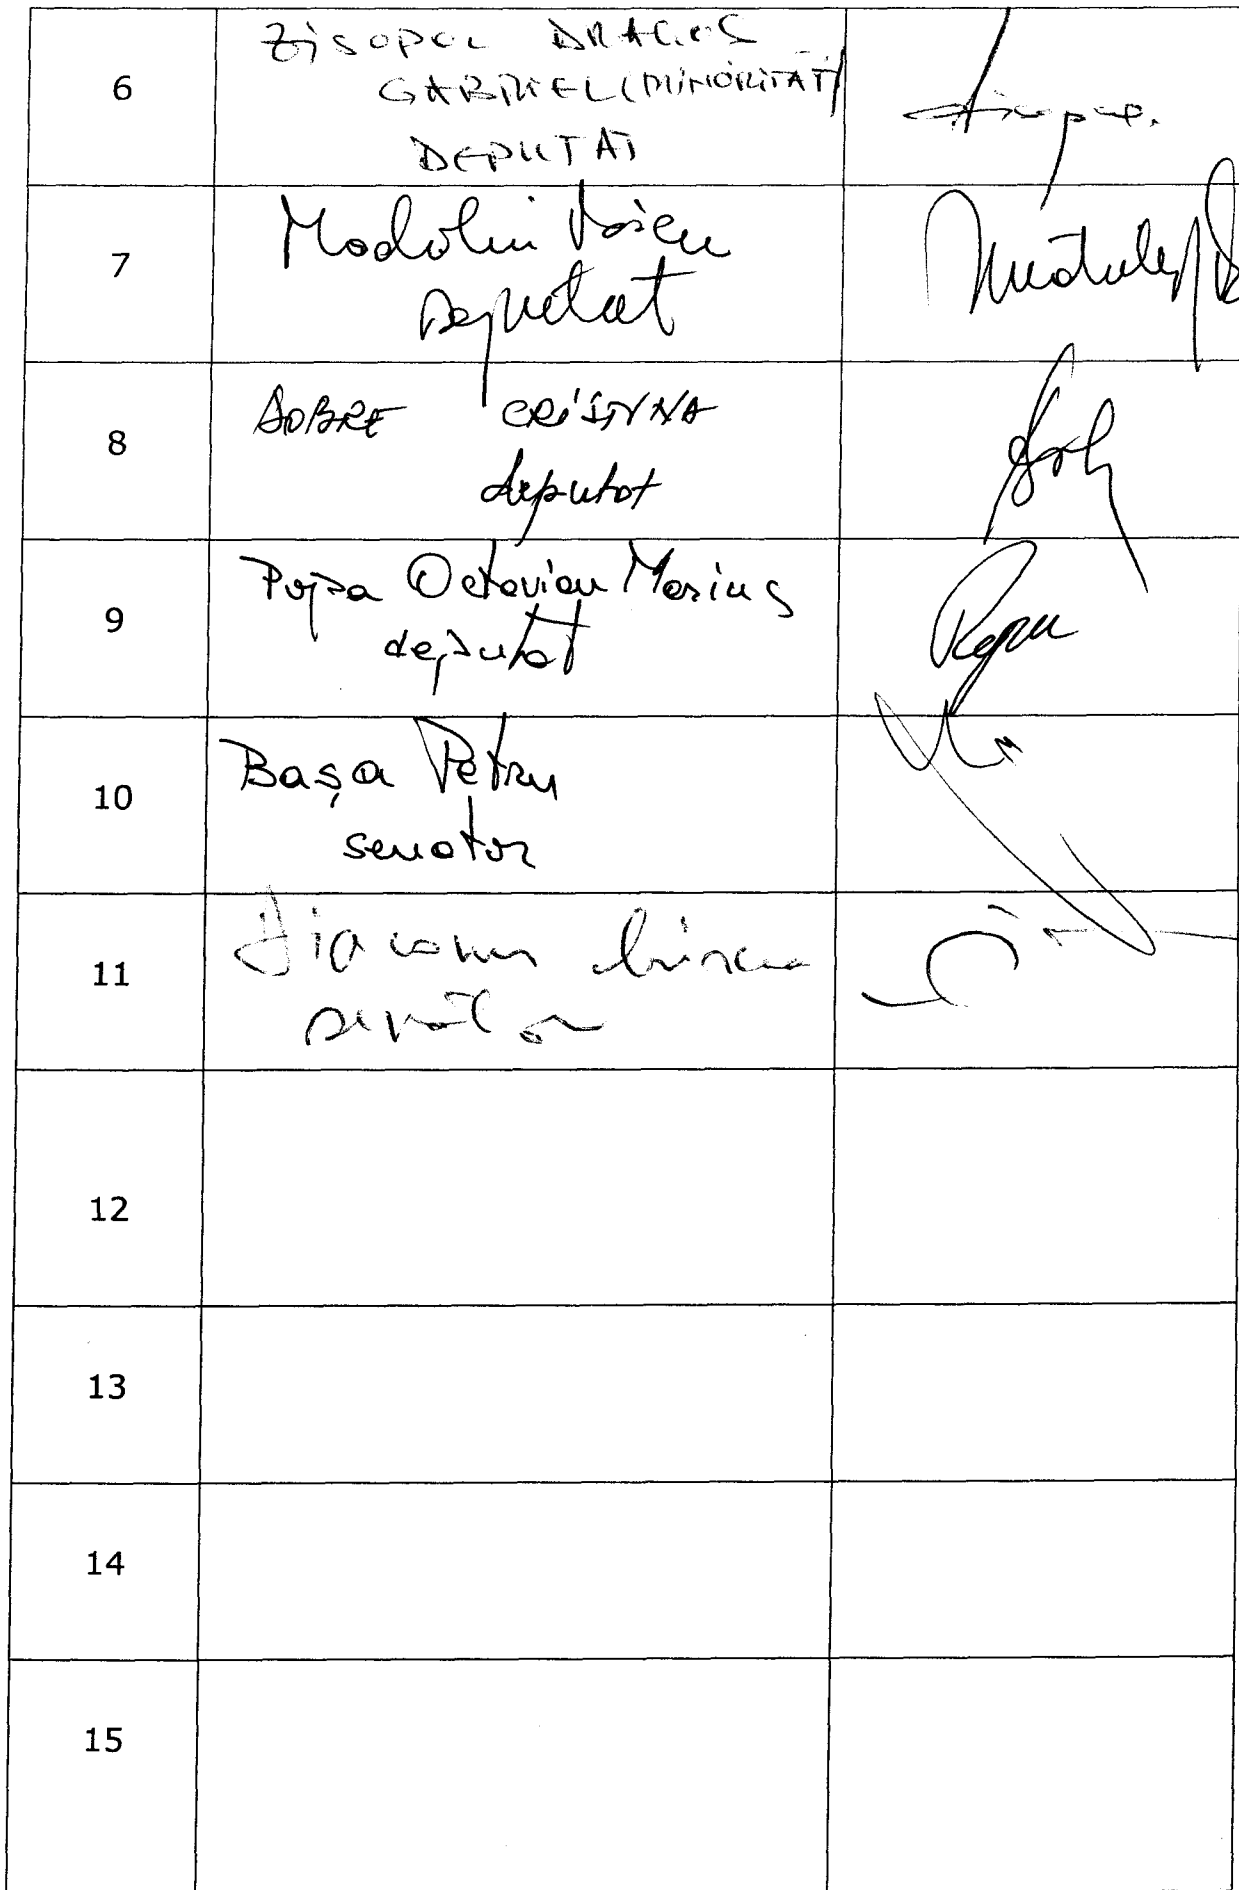 6
Zisopol DRAGOS
GABRIEL (MINORITATI)
DEPUTAT
7
Madolin Voicu
Deputat
8
DOBRE CRISTINA
deputat
9
Popa Octavian Marius
deputat
10
Bașa Petru
senator
11
Diaconu Mircea
senator
12
13
14
15